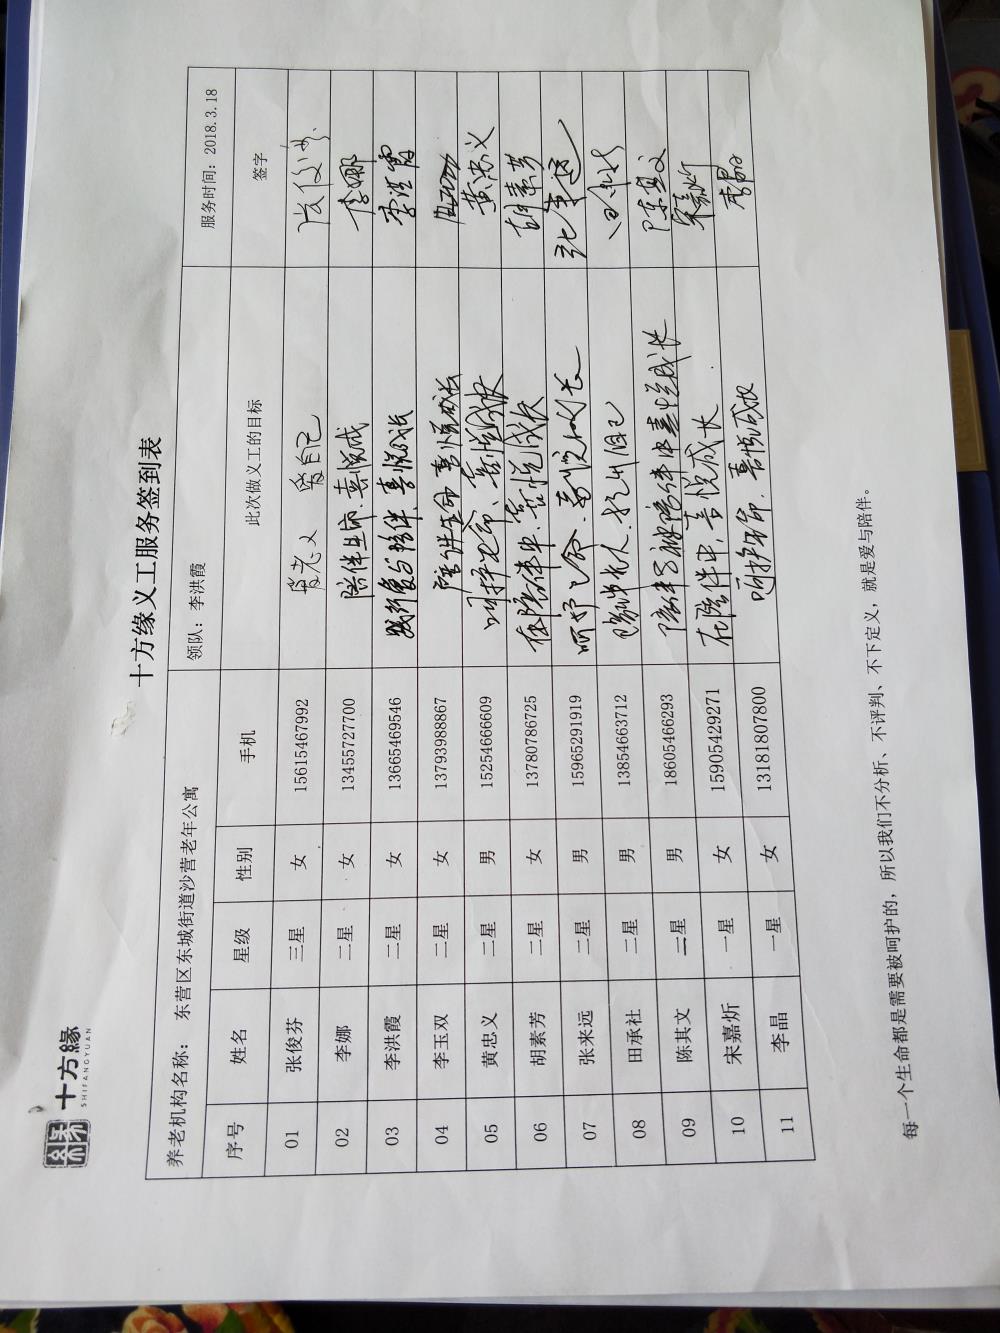 十方緣
SHIFANGYUAN
十方缘义工服务签到表
养老机构名称: 东营区东城街道沙营老年公寓 领队: 李洪霞 服务时间: 2018.3.18
序号 姓名 星级 性别 手机 此次做义工的目标 签字
01 张俊芬 三星 女 15615467992 爱老人 爱自己
02 李娜 二星 女 13455727700 陪伴生命.喜悦成 李娜
03 李洪霞 二星 女 13665469546 爱与陪伴、喜悦成长 李洪霞
04 李玉双 二星 女 13793988867 陪伴生命 喜悦成长
05 黄忠义 二星 男 15254666609 呵护生命、喜悦成长 黄忠义
06 胡素芳 二星 女 13780786725 在陪伴中.喜悦成长 胡素芳
07 张来远 二星 男 15965291919 呵护生命 张来远
08 田承社 二星 男 13854663712 自己 田承社
09 陈其文 二星 男 18605466293 喜悦成长 陈其文
10 宋嘉炘 一星 女 15905429271 在陪伴中,喜悦成长 宋嘉炘
11 李晶 一星 女 13181807800 呵护生命.喜悦成长 李晶
每一个生命都是需要被呵护的, 所以我们不分析、不评判、不下定义, 就是爱与陪伴。